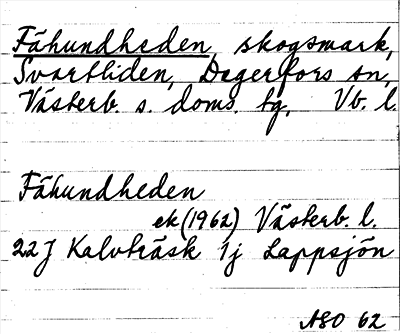 Fähundheden, skogsmark,
Svartliden, Degerfors sn,
Västerb. s. doms. tg, Vb. l.
Fähundheden
ek (1962) Västerb. l.
22J Kalvträsk 1j Lappsjön
ASO 62